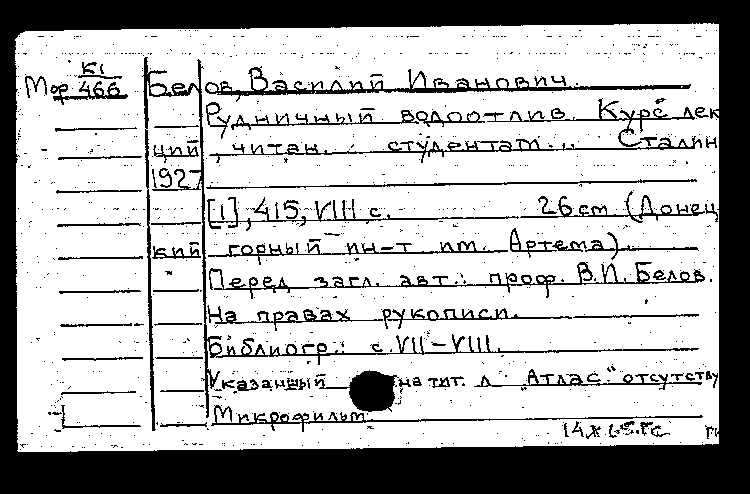 К1
Мор 466
Белов, Василий Иванович.
Рудничный водоотлив. Курс лек
ций, читан. студентам... Сталин
1927
[1], 415, VIII с. 26 см. (Донец
кий горный ин-т им. Артема).
Перед загл. авт.: проф. В.И. Белов.
На правах рукописи.
Библиогр.: с. VII-VIII.
Указанный на тит. л. "Атлас." отсутству
Микрофильм.
14.X